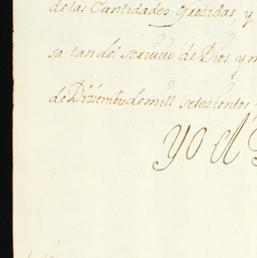 de las Cantidades ofrecidas, y
sa tan del seruicio de Dios y m
de Diziembre de mill setezientos
yo el